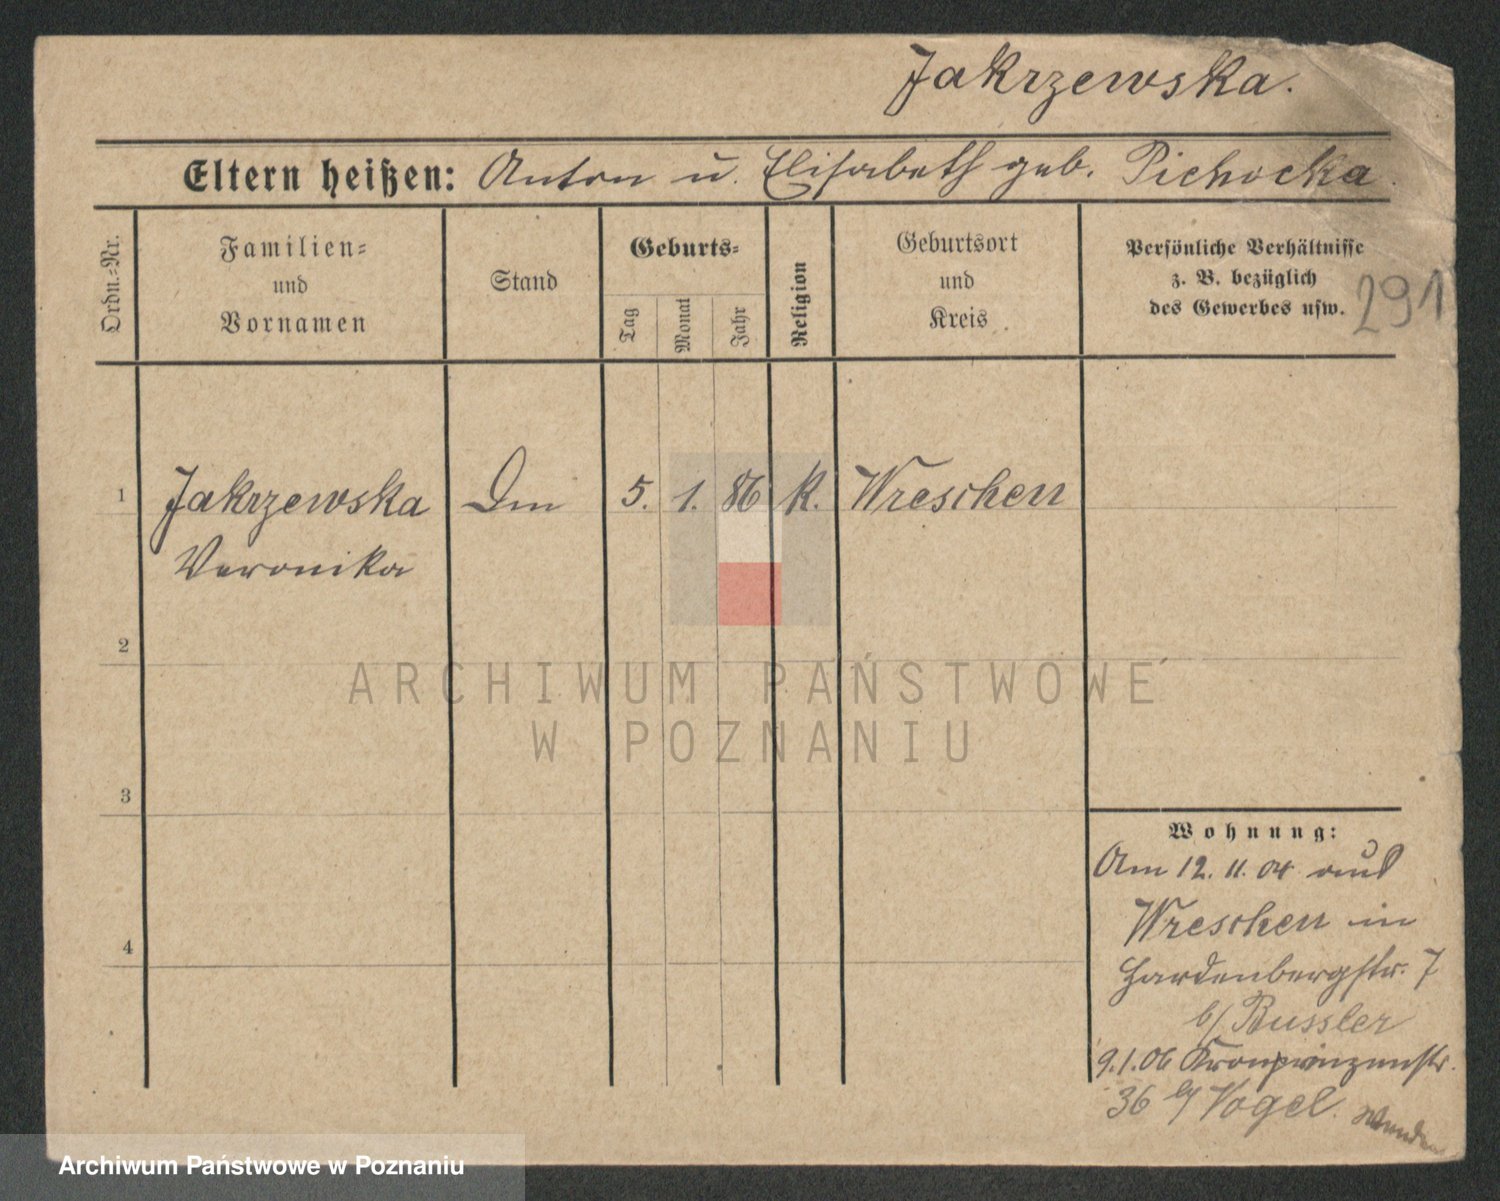 Jakrzewska.
Eltern heißen: Anton u. Elisabeth geb. Pichocka.
Ordn.-Nr.
Familien-
und
Vornamen
Stand
Geburts-
Tag
Monat
Jahr
Religion
Geburtsort
und
Kreis
Persönliche Verhältnisse
z. B. bezüglich
des Gewerbes usw.
291
1 Jakrzewska Dm 5. 1. 86 K. Wreschen
Veronika
2
ARCHIWUM PAŃSTWOWE
W POZNANIU
3
Wohnung:
Am 12. 11. 04 aus
Wreschen in
Hardenbergstr. 7
b/ Bussler
9.1.06 Kronprinzenstr.
36 b/ Vogel.
Wenden
4
Archiwum Państwowe w Poznaniu